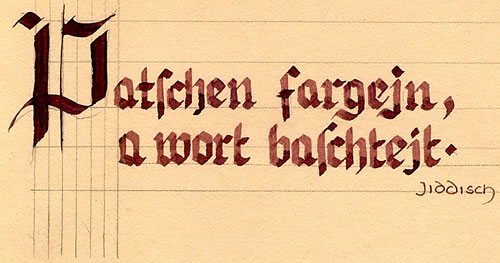 Patschen fargejn,
a wort baschtejt.
Jiddisch